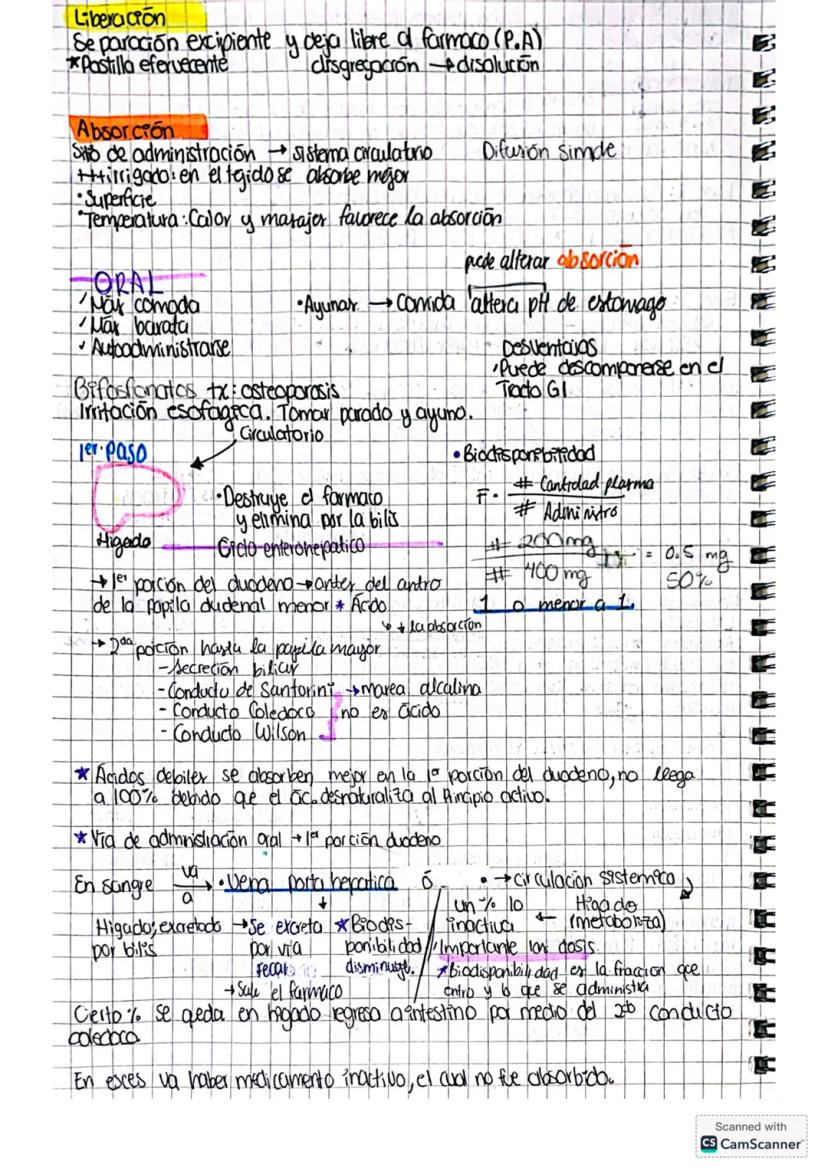 Liberación
Separación excipiente y deja libre al farmaco (P.A)
*Pastilla efervecente disgregación → disolución
Absorción
Sitio de administración → sistema circulatorio Difusión simple
+++irrigado: en el tejido se absorbe mejor
• Superficie
• Temperatura: Calor y masajes favorece la absorción
puede alterar absorción
ORAL
✓ Más comoda
• Ayunas → Comida altera pH de estomago
✓ Más barata
✓ Autoadministrarse
Desventajas
• Puede descomponerse en el
Tracto GI
Bifosfonatos tx: osteoporosis
Irritación esofagica. Tomar parado y ayuno.
Circulatorio
1er. PASO
• Biodisponibilidad
• Destruye el farmaco
y elimina por la bilis
F. # Cantidad plasma
# Administro
Higado Ciclo enterohepatico
# 200mg = 0.5 mg
# 400 mg 50%
→ 1er porción del duodeno → antes del antro
de la papila dudenal menor * Ácido
1 o menor a 1.
↳ ↓ la absorción
→ 2da porción hasta la papila mayor
- Secreción biliar
- Conducto de Santorini → marea alcalina
- Conducto Coledoco no es ácido
- Conducto Wilson
* Ácidos debiles se absorben mejor en la 1a porción del duodeno, no llega
a 100% debido que el ác. desnaturaliza al Principio activo.
* Via de admnistración oral → 1a porción duodeno
En sangre va a → • Vena porta hepatica ó • → circulación sistemica
Higado, excretado
por bilis
→ Se excreta
por via
fecal
→ Sale el farmaco
* Biodis-
ponibilidad
disminuye.
un % lo
inactiva ← Higado
(metaboliza)
Importante las dosis
* Biodisponibilidad es la fracción que
entro y lo que se administra
Cierto % se queda en higado regresa a intestino por medio del conducto
coledoco
En exces va haber medicamento inactivo, el cual no fue absorbido.
Scanned with
CS CamScanner